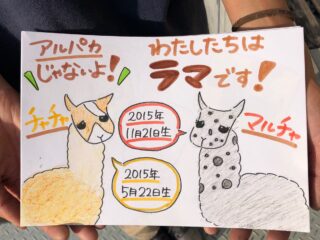 アルパカ
じゃないよ!
わたしたちは
ラマです!
チャチャ
2015年
11月21日生
マルチャ
2015年
5月22日生